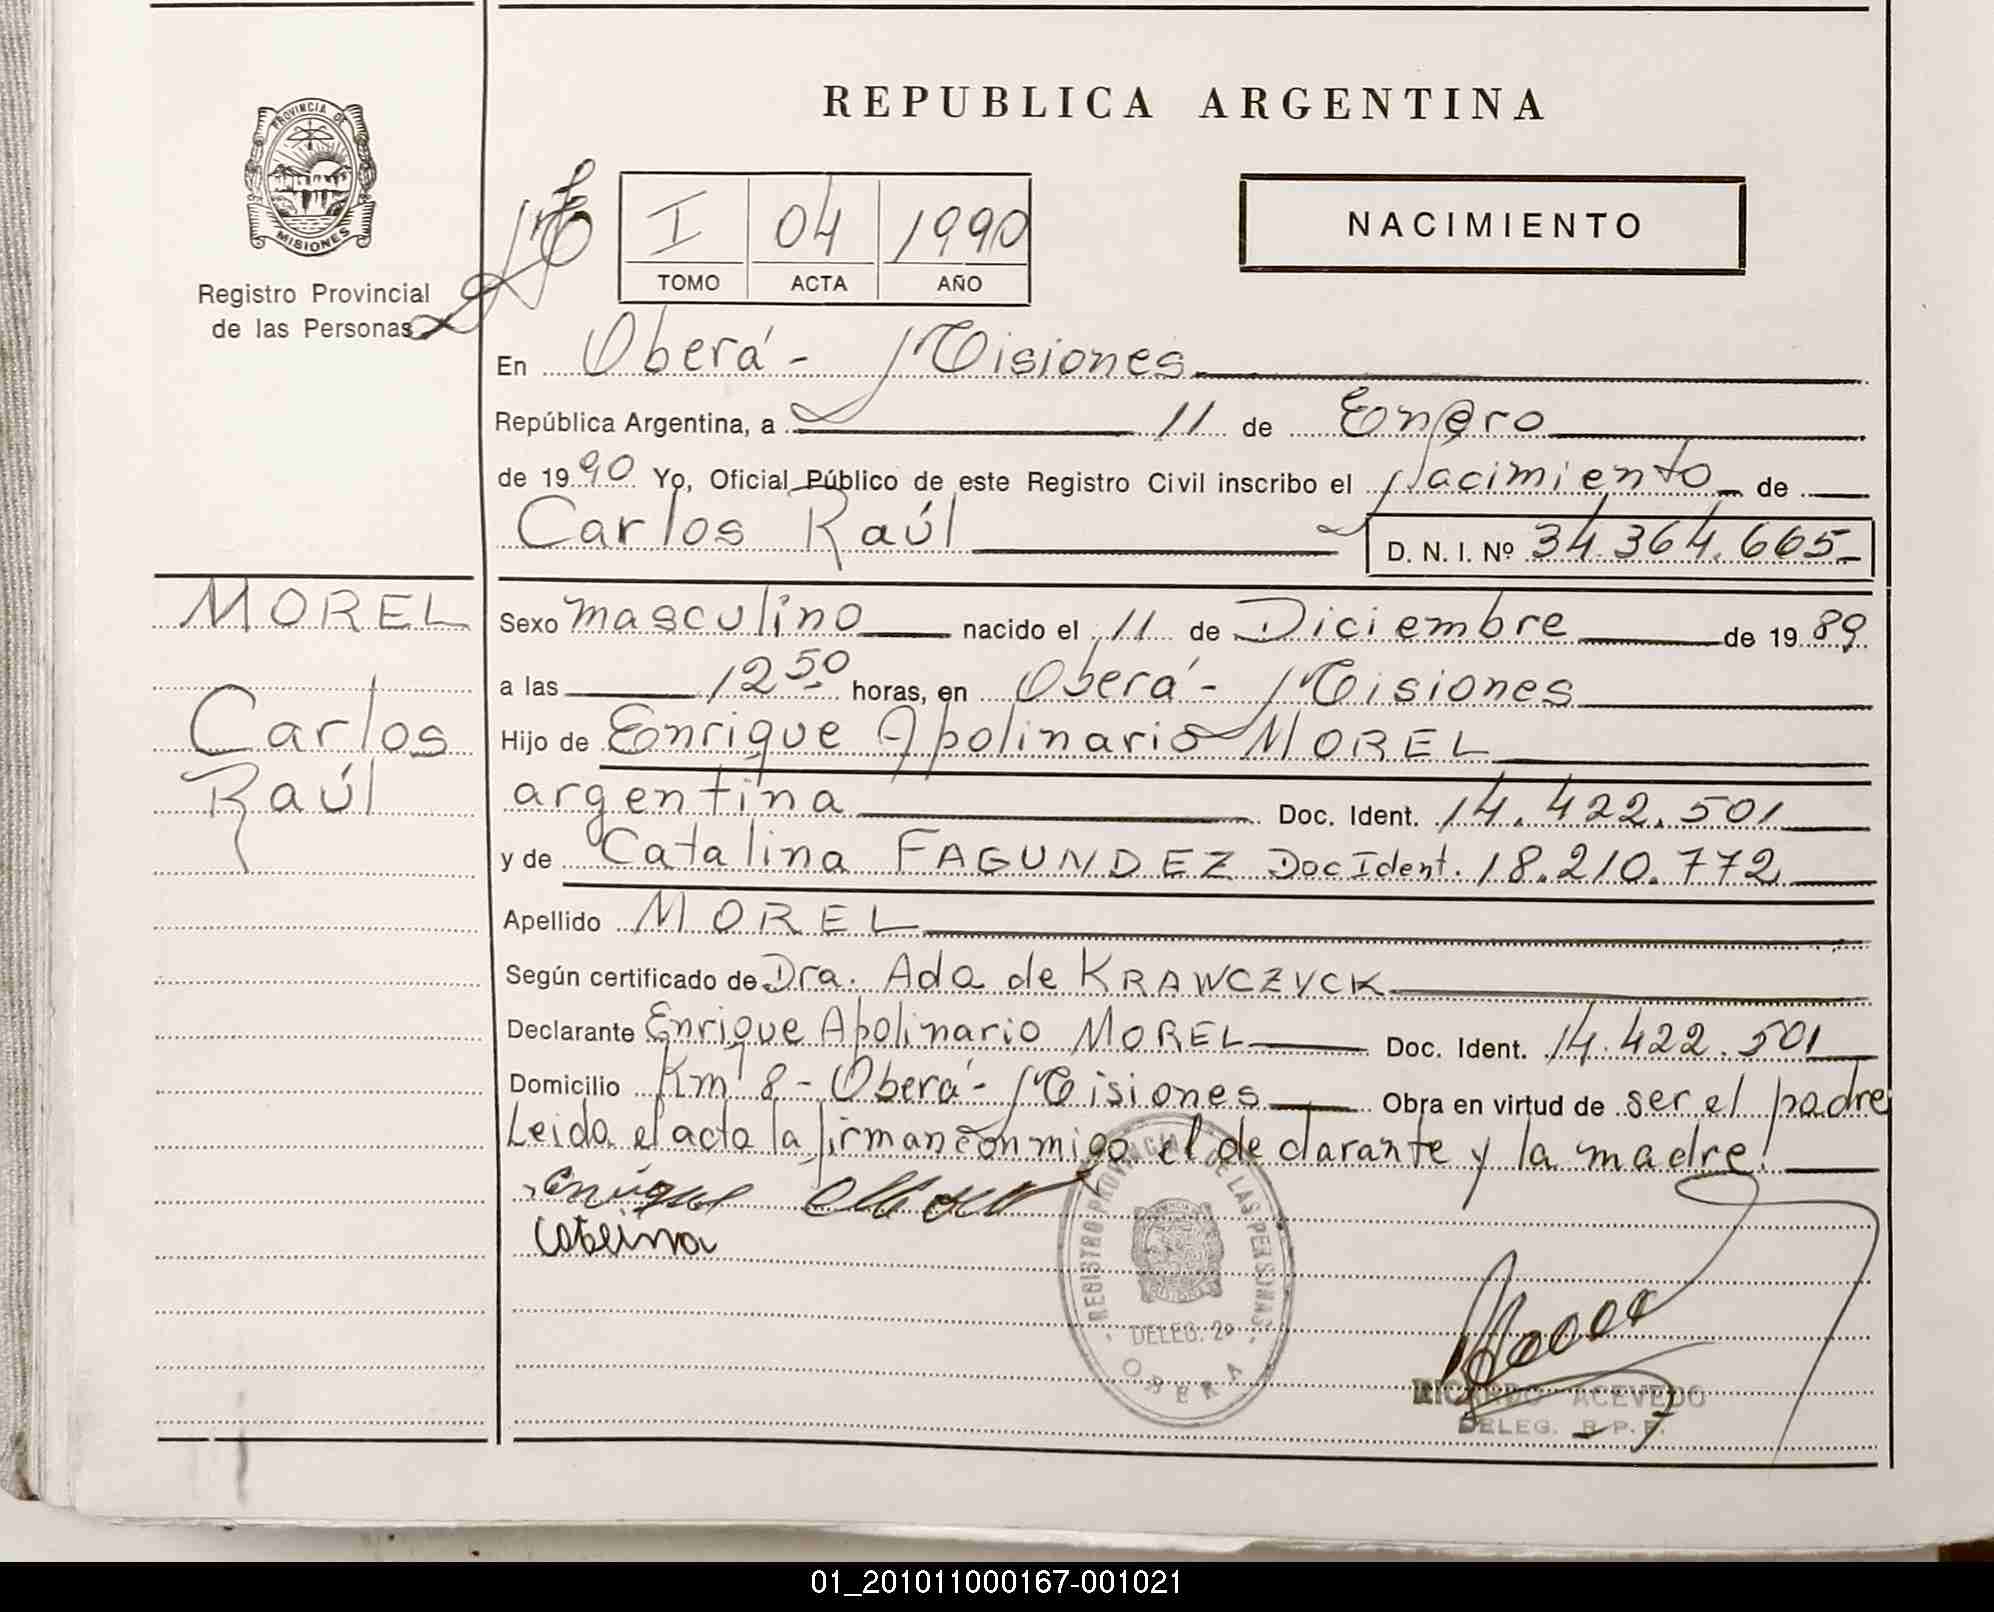 REPUBLICA ARGENTINA
PROVINCIA DE
MISIONES
Registro Provincial
de las Personas
I 04 1990
TOMO ACTA AÑO
NACIMIENTO
En Oberá - Misiones
República Argentina, a 11 de Enero
de 1990 Yo, Oficial Público de este Registro Civil inscribo el Nacimiento de
Carlos Raúl D. N. I. Nº 34.364.665-
MOREL
Carlos
Raúl
Sexo masculino nacido el 11 de Diciembre de 1989
a las 12 50 horas, en Oberá - Misiones
Hijo de Enrique Apolinario MOREL
argentina Doc. Ident. 14.422.501
y de Catalina FAGUNDEZ Doc Ident. 18.210.772
Apellido MOREL
Según certificado de Dra. Ada de KRAWCZYCK
Declarante Enrique Apolinario MOREL Doc. Ident. 14.422.501
Domicilio Km 8 - Oberá - Misiones Obra en virtud de ser el padre
Leida el acta la firman conmigo el declarante y la madre
Enrique
REGISTRO PROVINCIAL DE LAS PERSONAS
DELEG. 2º
OBERA
RICARDO ACEVEDO
DELEG. R.P.P.
01_201011000167-001021